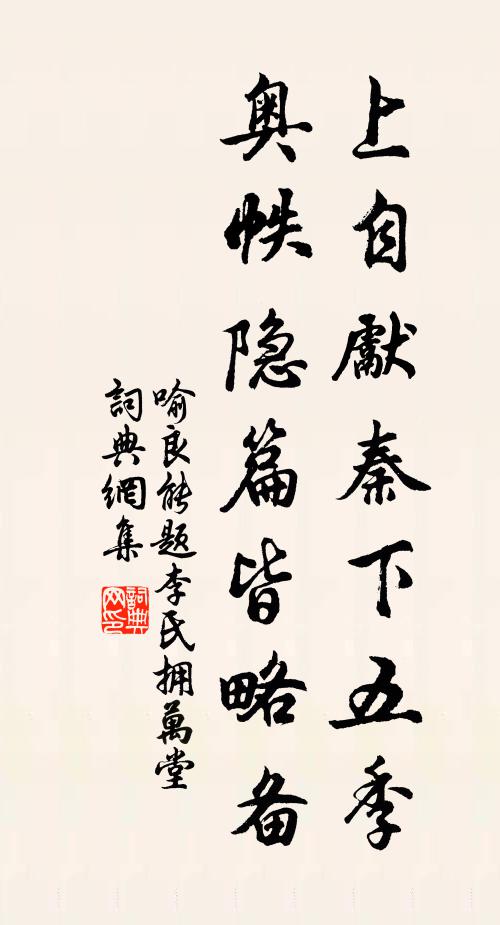 上自獻秦下五季
奧帙隐篇皆略备
喻良能题李氏拥萬堂
詞典網集
詞典网印